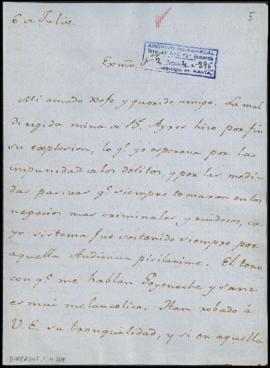 5
6 de Julio
Exmo. Sr.
Mi amado Xefe y querido amigo. La mal
dirigida mina de Bs. Ayres hizo por fin
su explosion, lo qe. yo esperava por las
impunidad de los delitos, y por las medi-
das pasivas qe. siempre tomaron en los
negocios mas criminales y ruidosos, cu-
yo sistema fue sostenido siempre por
aquella Audiencia pisilanime. El tono
con qe. me hablan Goyeneche y Sanz
es mui melancolico. Han robado á
V. E. su tranquilidad, y si en aquella